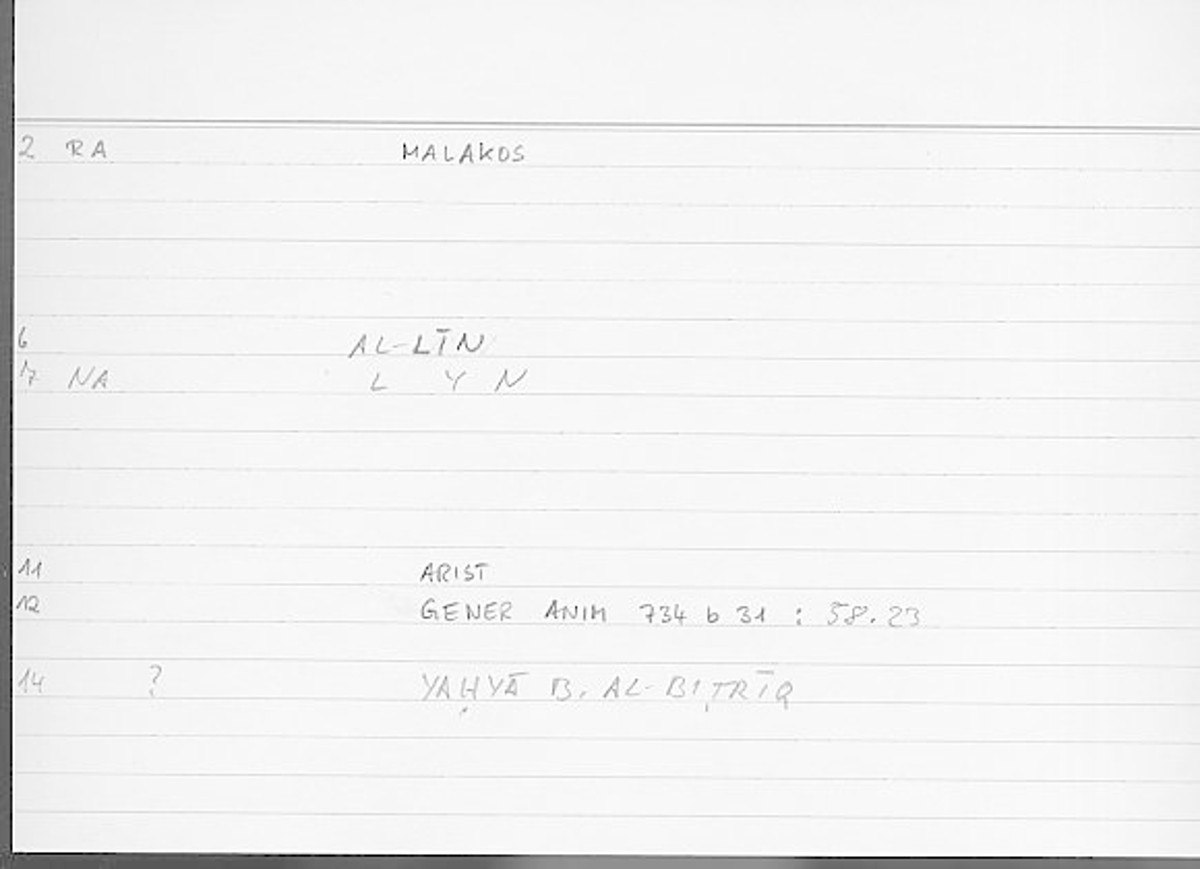 2 RA MALAKOS
6 AL-LĪN
7 NA L Y N
11 ARIST
12 GENER ANIM 734 b 31 : 58.23
14 ? YAḤYĀ B. AL-BIṬRĪQ